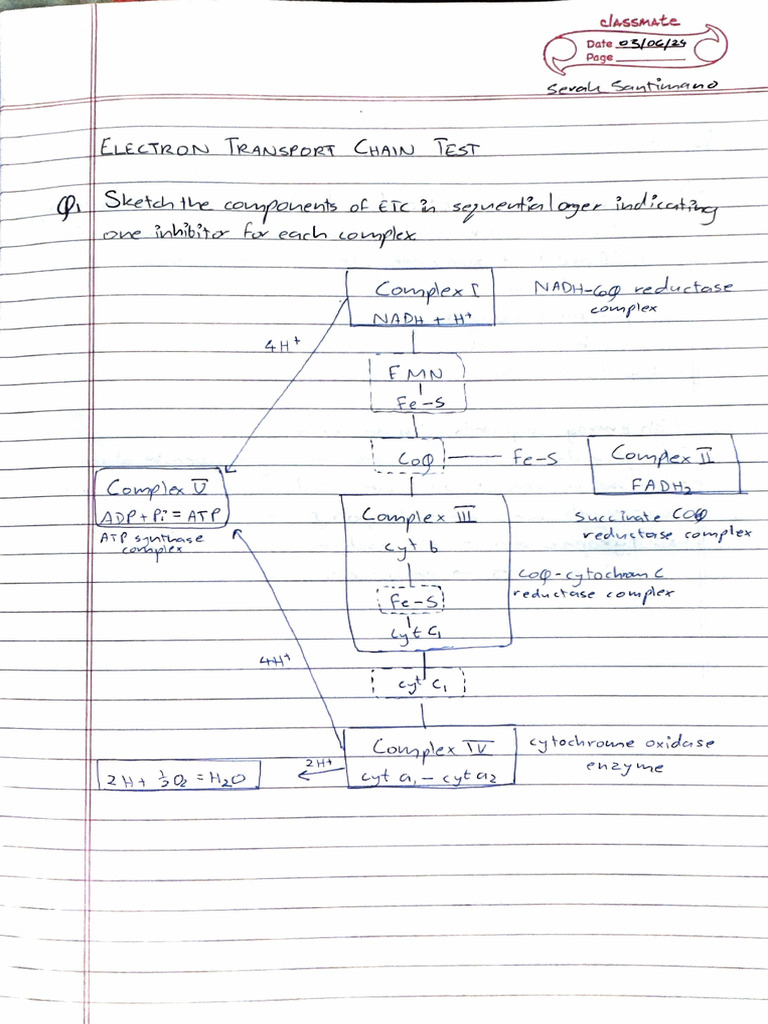 classmate
Date 03/06/24
Page
Serah Santimano
ELECTRON TRANSPORT CHAIN TEST
Q1 Sketch the components of ETC in sequential orger indicating
one inhibitor for each complex.
Complex I
NADH + H+
NADH-CoQ reductase
complex
4H+
FMN
Fe-S
CoQ
Fe-S
Complex II
FADH2
succinate COQ
reductase complex
Complex V
ADP + Pi = ATP
ATP synthase
complex
Complex III
cyt b
Fe-S
cyt C1
CoQ-cytochrom C
reductase complex
4H+
cyt C1
Complex IV
cyt a1 - cyt a2
cytochrome oxidase
enzyme
2H+
2H + 1/2 O2 = H2O